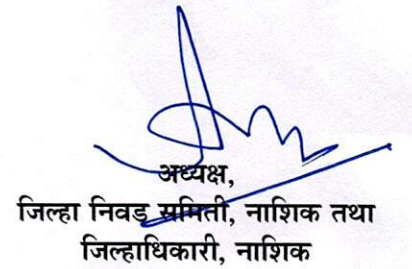 अध्यक्ष,
जिल्हा निवड समिती, नाशिक तथा
जिल्हाधिकारी, नाशिक